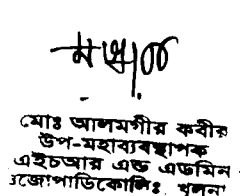 মোঃ আলমগীর কবীর
উপ-মহাব্যবস্থাপক
এইচআর এন্ড এডমিন
ওজোপাডিকোলিঃ, খুলনা